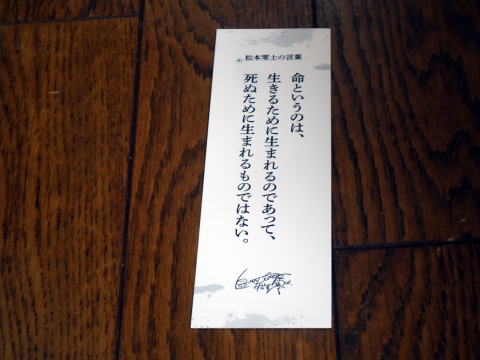 松本零士の言葉
命というのは、
生きるために生まれるのであって、
死ぬために生まれるものではない。